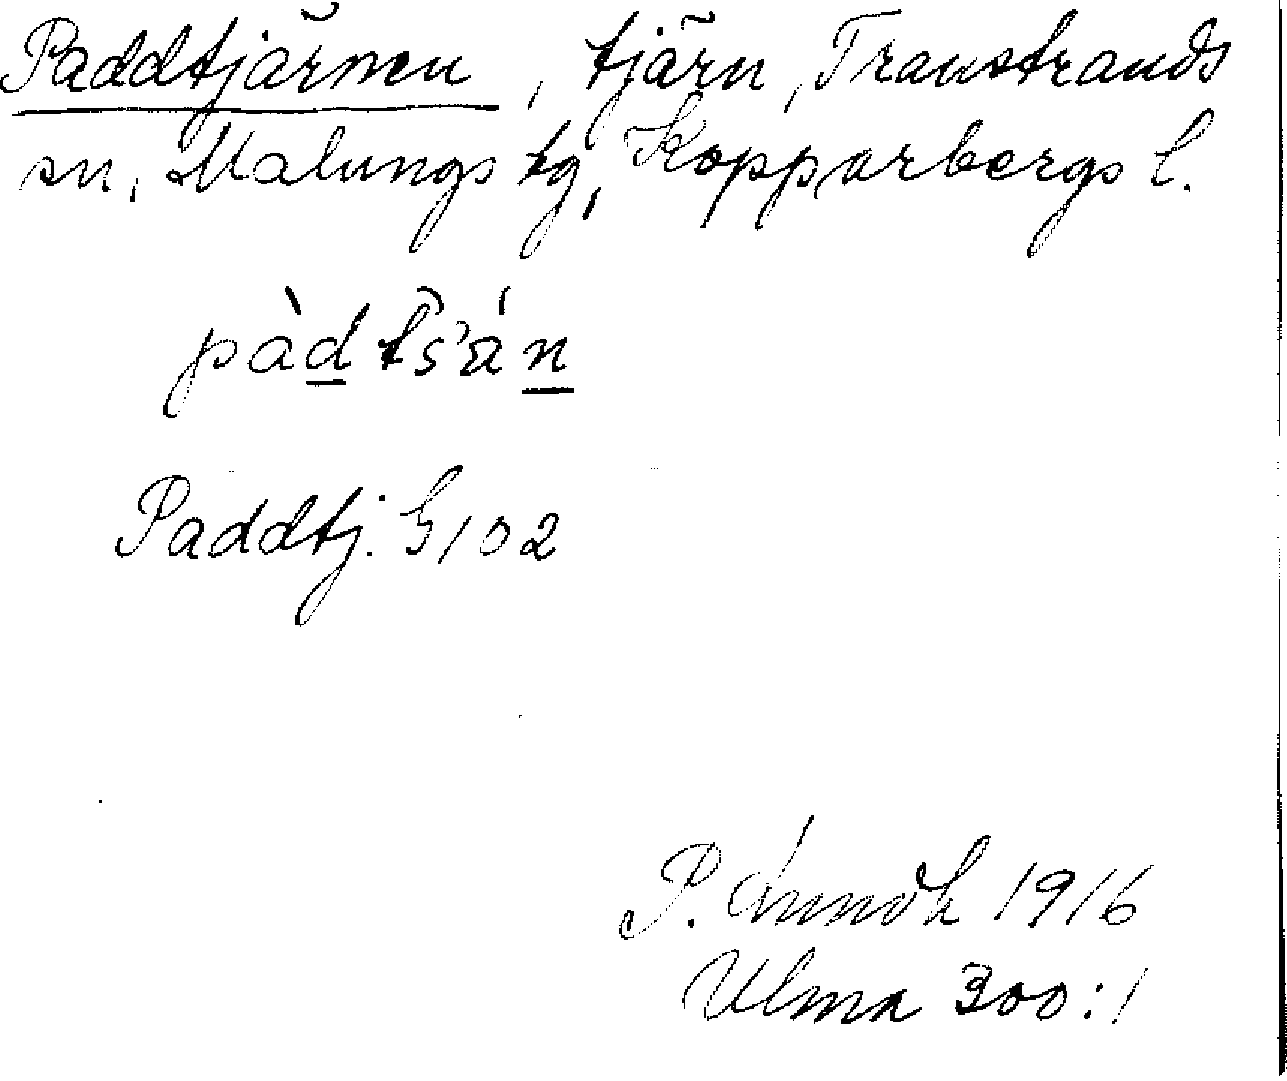 Paddtjärnen, tjärn, Transtrands
sn, Malungs tg, Kopparbergs l.
pàdtšán
Paddtj. G102
P. 1916
Ulma 300:1